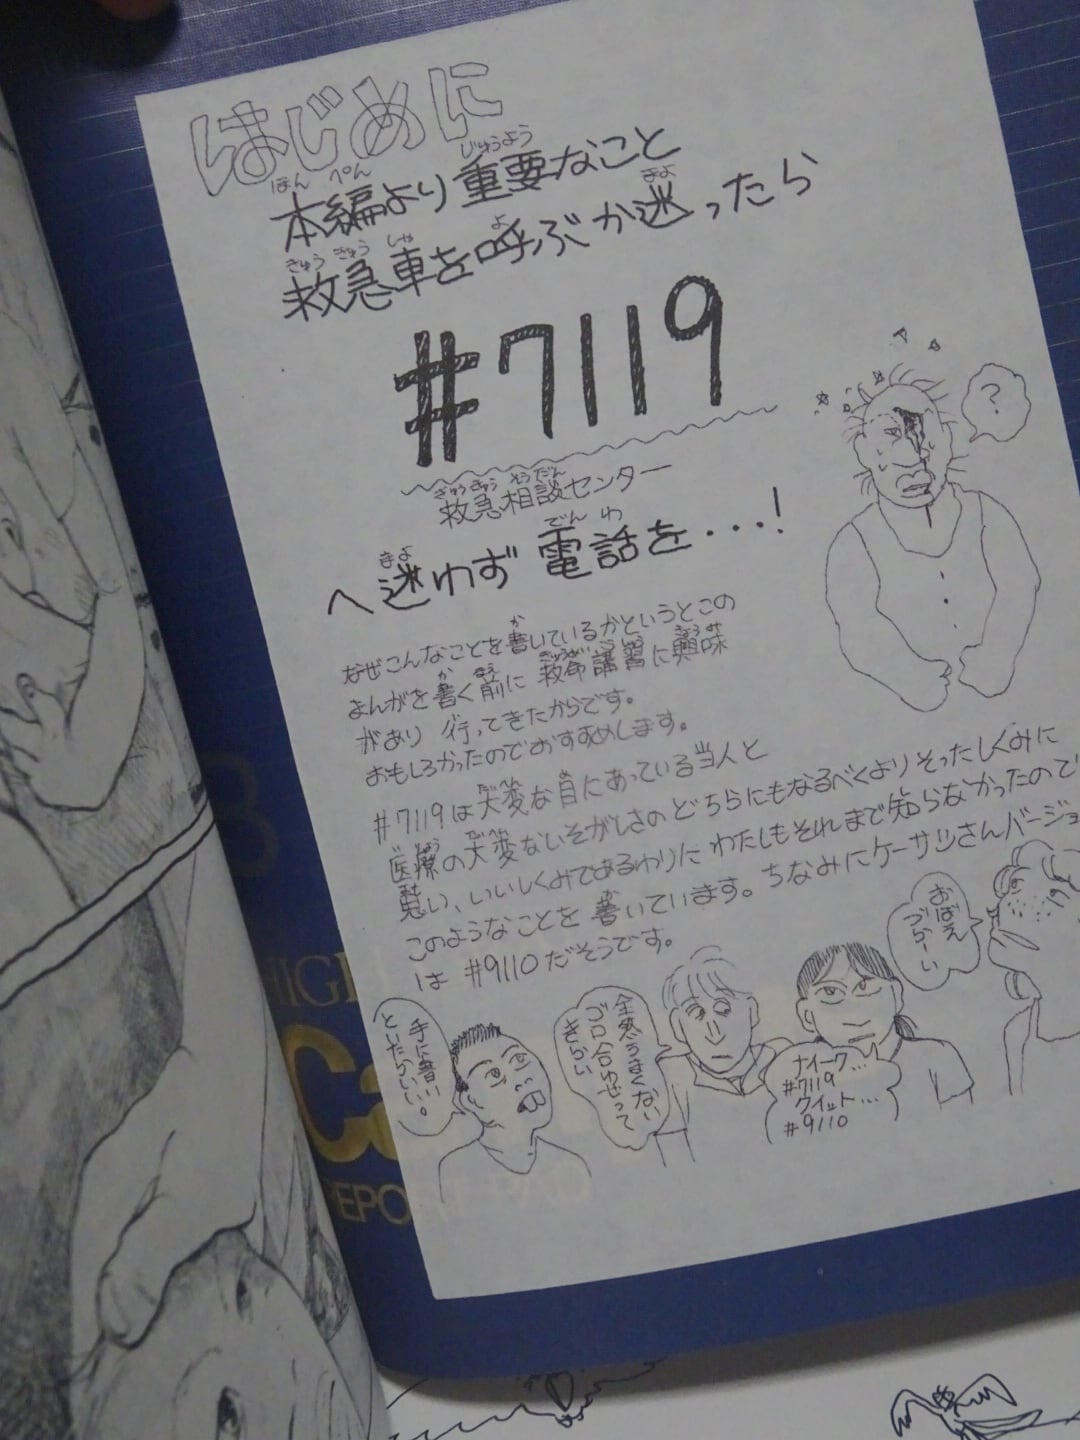 はじめに
本編より重要なこと
救急車を呼ぶか迷ったら
#7119
救急相談センター
へ迷わず電話を・・・!
なぜこんなことを書いているかというとこの
まんがを書く前に救命講習に興味
があり 行ってきたからです。
おもしろかったのでおすすめします。
#7119は大変な目にあっている当人と
医療の大変ないそがしさのどちらにもなるべくよりそったしくみに
思い、いいしくみであるわりに わたしもそれまで知らなかったので
このようなことを書いています。ちなみにケーサツさんバージョ
は #9110だそうです。
?
おぼえ
づらーい
ナイーク…
#7119
クイット…
#9110
全然うまくない
ゴロ合わせって
きらい
手に書い
といたらいい。
HIGH
REPORT PAD